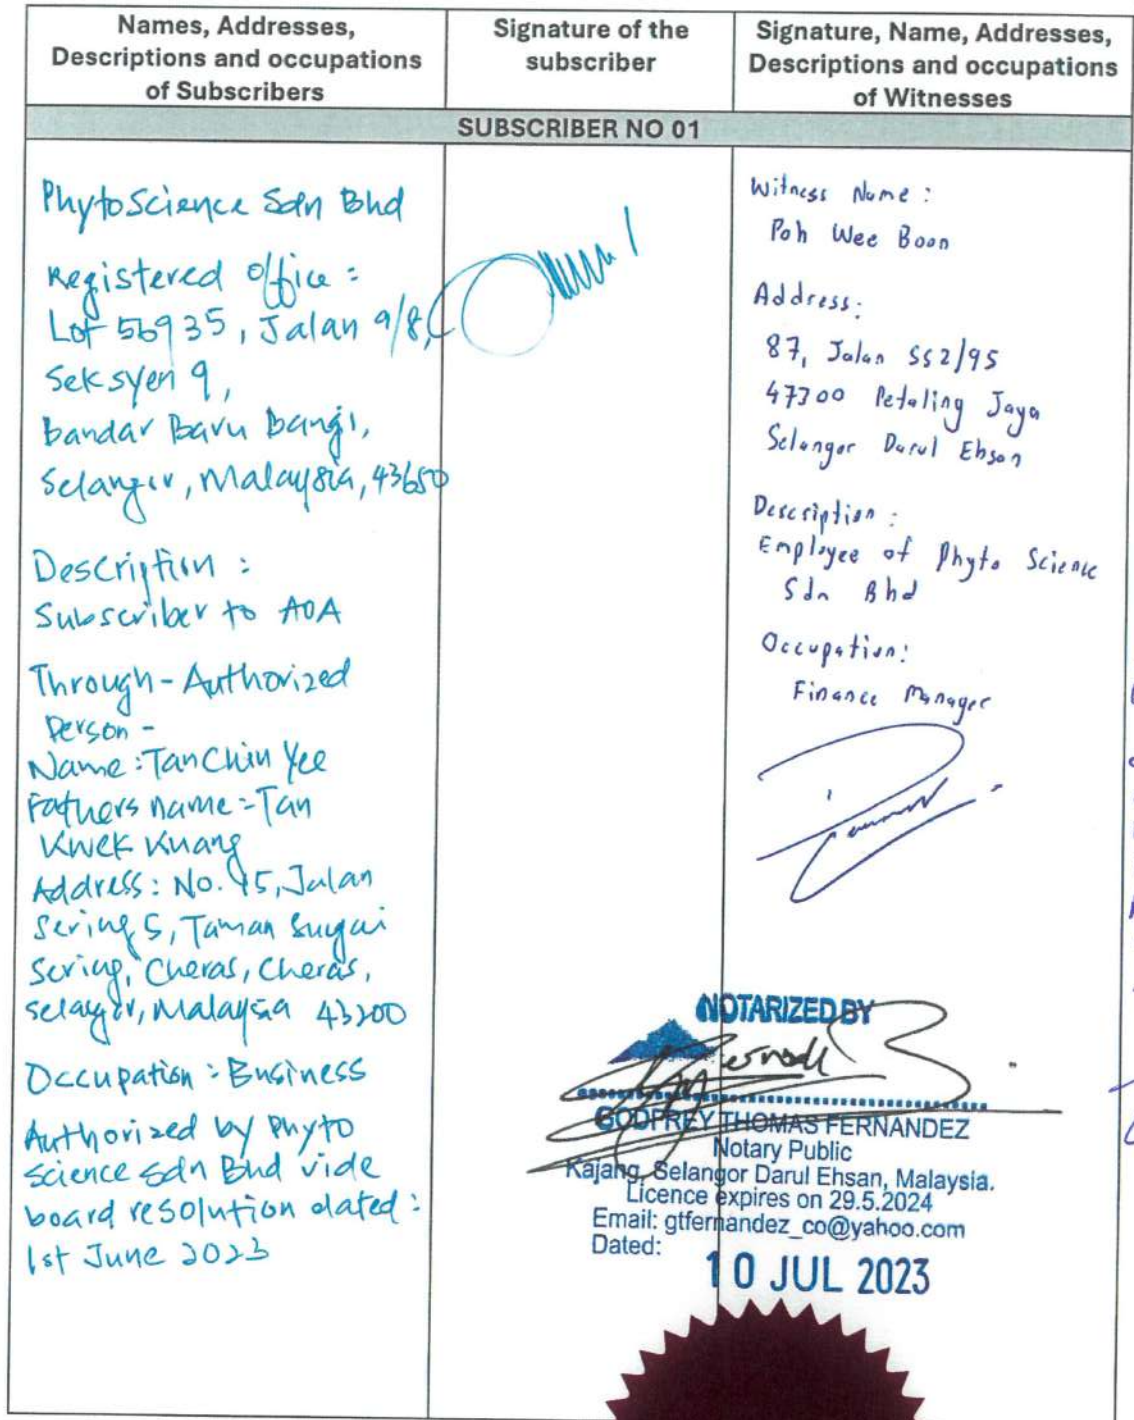 Names, Addresses,
Descriptions and occupations
of Subscribers
Signature of the
subscriber
Signature, Name, Addresses,
Descriptions and occupations
of Witnesses
SUBSCRIBER NO 01
PhytoScience Sdn Bhd
Registered office :
Lot 56935, Jalan 9/8,
Seksyen 9,
bandar Baru bangi,
Selangor, Malaysia, 43650
Description :
Subscriber to AOA
Through - Authorized
Person -
Name : Tan Chin Yee
Fathers name - Tan
Kwek Kuang
Address : No. 45, Jalan
Sering 5, Taman Sugai
Sering, Cheras, Cheras,
Selangor, Malaysia 43200
Occupation : Business
Authorized by Phyto
Science Sdn Bhd vide
board resolution dated :
1st June 2023
Witness Name :
Poh Wee Boon
Address :
87, Jalan SS2/95
47300 Petaling Jaya
Selangor Darul Ehsan
Description :
Employee of Phyto Science
Sdn Bhd
Occupation :
Finance Manager
NOTARIZED BY
GODFREY THOMAS FERNANDEZ
Notary Public
Kajang, Selangor Darul Ehsan, Malaysia.
Licence expires on 29.5.2024
Email: gtfernandez_co@yahoo.com
Dated:
10 JUL 2023